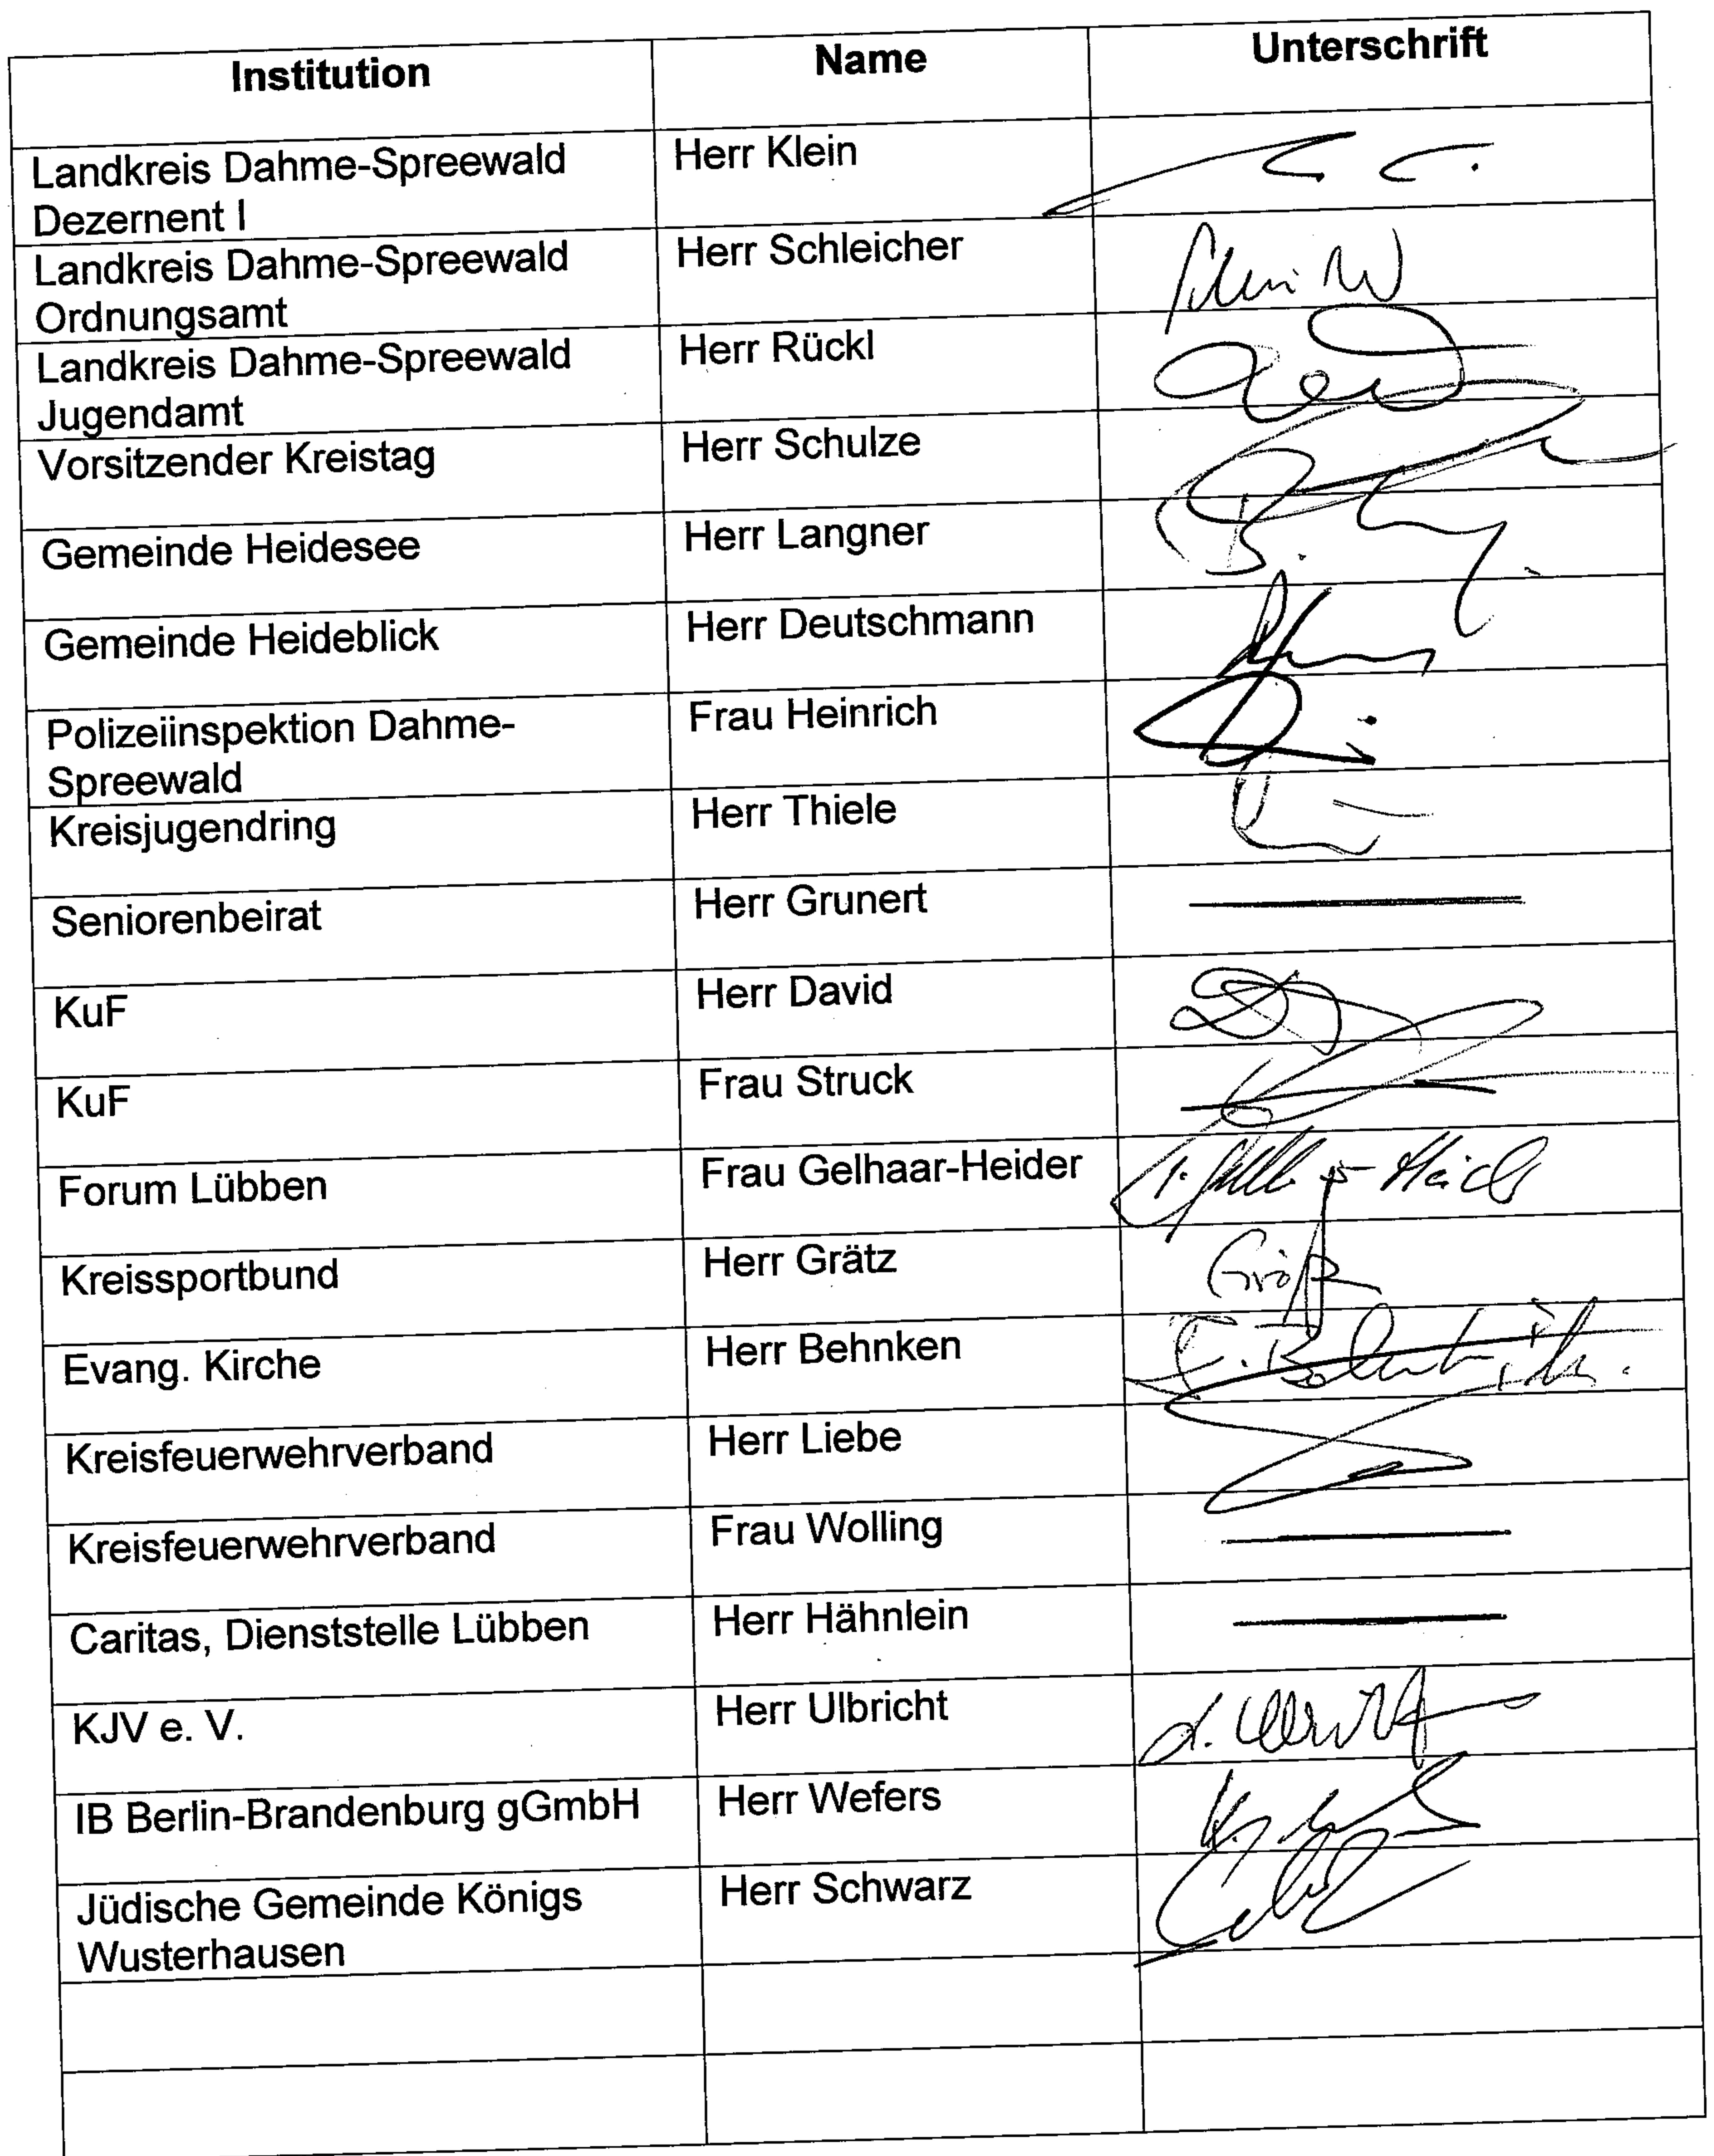 Institution Name Unterschrift
Landkreis Dahme-Spreewald Herr Klein
Dezernent I
Landkreis Dahme-Spreewald Herr Schleicher
Ordnungsamt
Landkreis Dahme-Spreewald Herr Rückl
Jugendamt
Vorsitzender Kreistag Herr Schulze
Gemeinde Heidesee Herr Langner
Gemeinde Heideblick Herr Deutschmann
Polizeiinspektion Dahme- Frau Heinrich
Spreewald
Kreisjugendring Herr Thiele
Seniorenbeirat Herr Grunert
KuF Herr David
KuF Frau Struck
Forum Lübben Frau Gelhaar-Heider
Kreissportbund Herr Grätz
Evang. Kirche Herr Behnken
Kreisfeuerwehrverband Herr Liebe
Kreisfeuerwehrverband Frau Wolling
Caritas, Dienststelle Lübben Herr Hähnlein
KJV e. V. Herr Ulbricht
IB Berlin-Brandenburg gGmbH Herr Wefers
Jüdische Gemeinde Königs Herr Schwarz
Wusterhausen